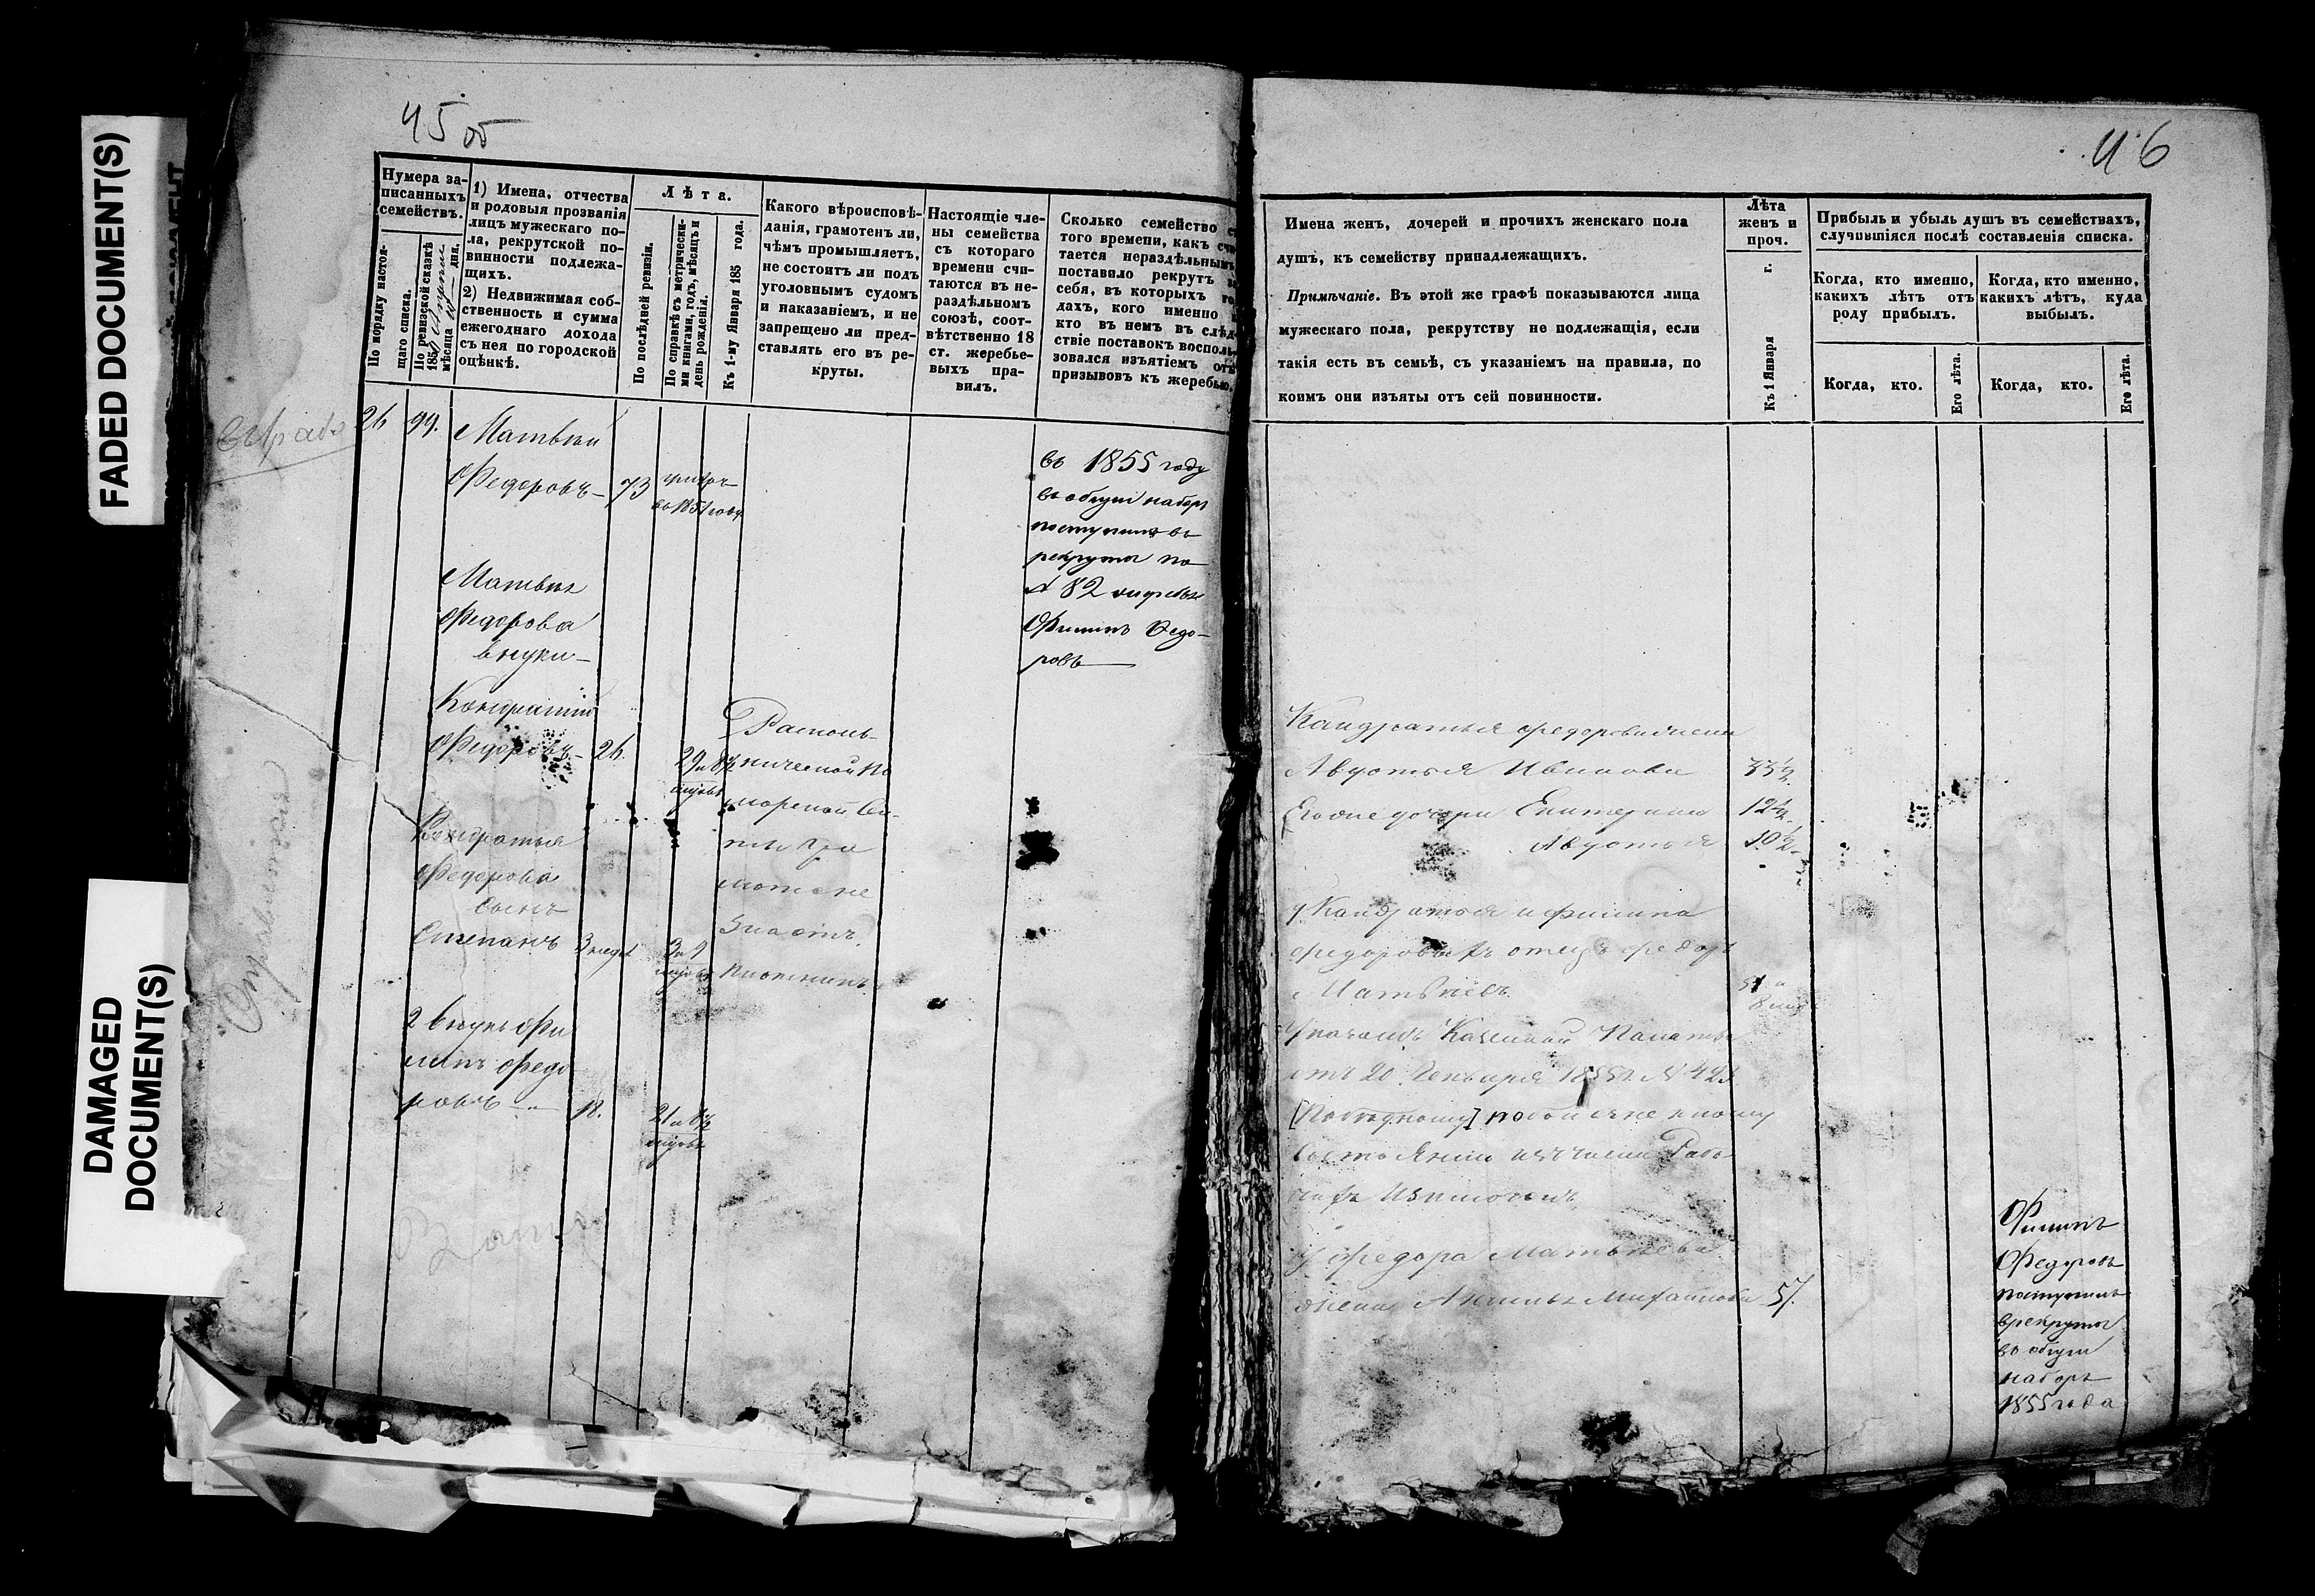 FADED DOCUMENT(S)
DAMAGED
DOCUMENT(S)
45 об
Нумера за-
писанныхъ
семействъ.
По порядку настоя-
щаго списка.
По ревизской сказкѣ
1850
мѣсяца
дня.
1) Имена, отчества
и родовыя прозванія
лицъ мужескаго по-
ла, рекрутской по-
винности подлежа-
щихъ.
2) Недвижимая соб-
ственность и сумма
ежегоднаго дохода
съ нея по городской
оцѣнкѣ.
Лѣта.
По послѣдней ревизіи.
По справкѣ съ метрически-
ми книгами, годъ, мѣсяцъ и
день рожденія.
Къ 1-му Января 185 года.
Какого вѣроисповѣ-
данія, грамотенъ ли,
чѣмъ промышляетъ,
не состоитъ ли подъ
уголовнымъ судомъ
и наказаніемъ, и не
запрещено ли пред-
ставлять его въ ре-
круты.
Настоящіе чле-
ны семейства
съ котораго
времени счи-
таются въ не-
раздѣльномъ
союзѣ, соот-
вѣтственно 18
ст. жеребье-
выхъ пра-
вилъ.
Сколько семейство съ
того времени, какъ счи-
тается нераздѣльнымъ
поставило рекрутъ за
себя, въ которыхъ го-
дахъ, кого именно и
кто въ немъ въ слѣд-
ствіе поставокъ восполь-
зовался изъятіемъ отъ
призывовъ къ жеребью.
26
99.
Матвѣй
Ѳедоровъ - 73
въ 1851 году
Матвѣя
Федорова
внуки -
Кондратій
Федоровъ - 26.
29 и 8½
Кондратья
Федорова
сынъ
Степанъ 3 недѣл
3 и 9
2 внукъ Фи
липъ Федо
ровъ - 18.
21 и 8½
Раскольнической По
морской Сек
ты Гра
мотѣ не
знаетъ.
Плотникъ
въ 1855 году
въ общій наборъ
поступилъ въ
рекруты по
№ 82 жеребью
Филипъ Федо-
ровъ
46
Имена женъ, дочерей и прочихъ женскаго пола
душъ, къ семейству принадлежащихъ.
Примѣчаніе. Въ этой же графѣ показываются лица
мужескаго пола, рекрутству не подлежащія, если
такія есть въ семьѣ, съ указаніемъ на правила, по
коимъ они изъяты отъ сей повинности.
Лѣта
женъ и
проч.
Къ 1 Января г.
Прибыль и убыль душъ въ семействахъ,
случившіяся послѣ составленія списка.
Когда, кто именно,
какихъ лѣтъ отъ
роду прибылъ.
Когда, кто именно,
какихъ лѣтъ, куда
выбылъ.
Когда, кто.
Его лѣта.
Когда, кто.
Его лѣта.
Кандратья Федорова жена
Авдотья Иванова 33½
Ево же дочери Екатерина 12½
Авдотья 10½
у Кандратья и Филипа
Федоровыхъ отецъ Федоръ
Матвѣевъ 51 и
Указомъ Казенной Палаты
отъ 20 Генваря 1855 г. № 423
состоянію изъ числа Рабо-
чихъ Изключенъ
У Федора Матвѣева
жена Акилина Михайлова 57.
Филипъ
Федоровъ
поступилъ
врекруты
во общій
наборъ
1855 года